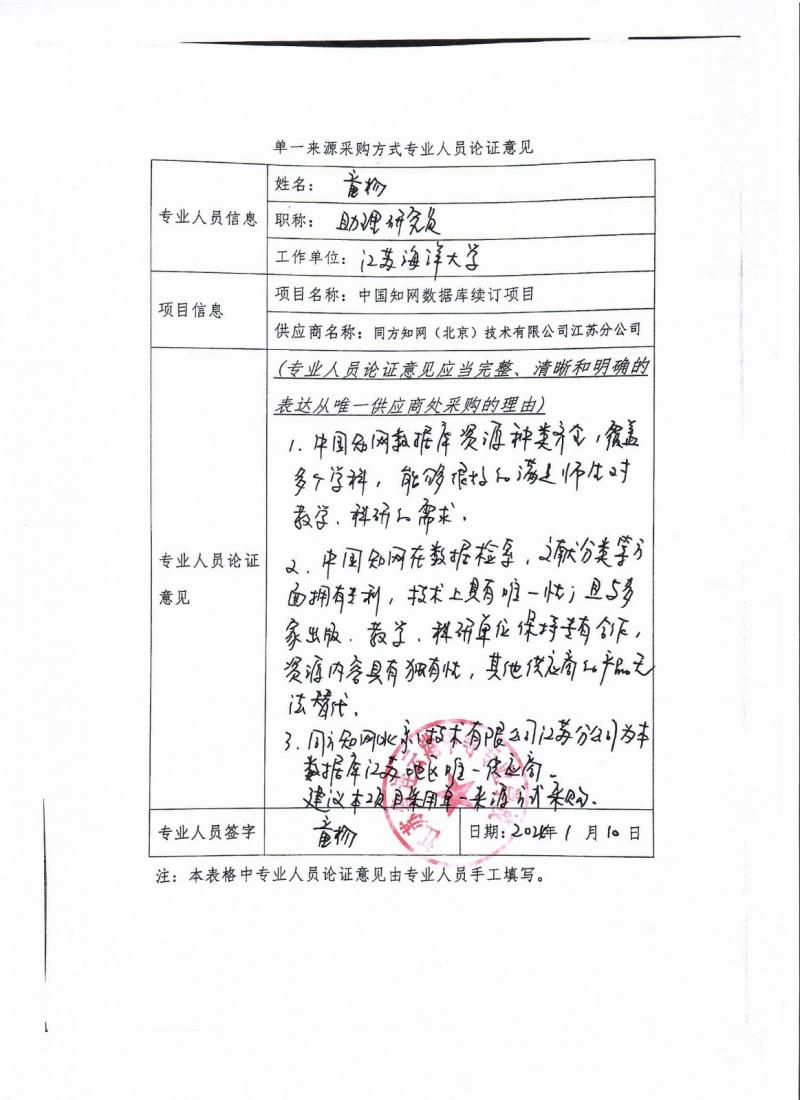 单一来源采购方式专业人员论证意见
专业人员信息
姓名：童杨
职称：助理研究员
工作单位：江苏海洋大学
项目信息
项目名称：中国知网数据库续订项目
供应商名称：同方知网（北京）技术有限公司江苏分公司
专业人员论证
意见
(专业人员论证意见应当完整、清晰和明确的
表达从唯一供应商处采购的理由)
1. 中国知网数据库资源种类齐全，覆盖
多个学科，能够很好的满足师生对
教学、科研的需求。
2. 中国知网在数据检索，文献分类等方
面拥有专利，技术上具有唯一性；且与多
家出版、教学、科研单位保持专有合作，
资源内容具有独有性，其他供应商的产品无
法替代。
3. 同方知网(北京)技术有限公司江苏分公司为本
数据库江苏地区唯一供应商。
建议本项目采用单一来源方式采购。
专业人员签字
童杨
日期：2024年1月10日
注：本表格中专业人员论证意见由专业人员手工填写。